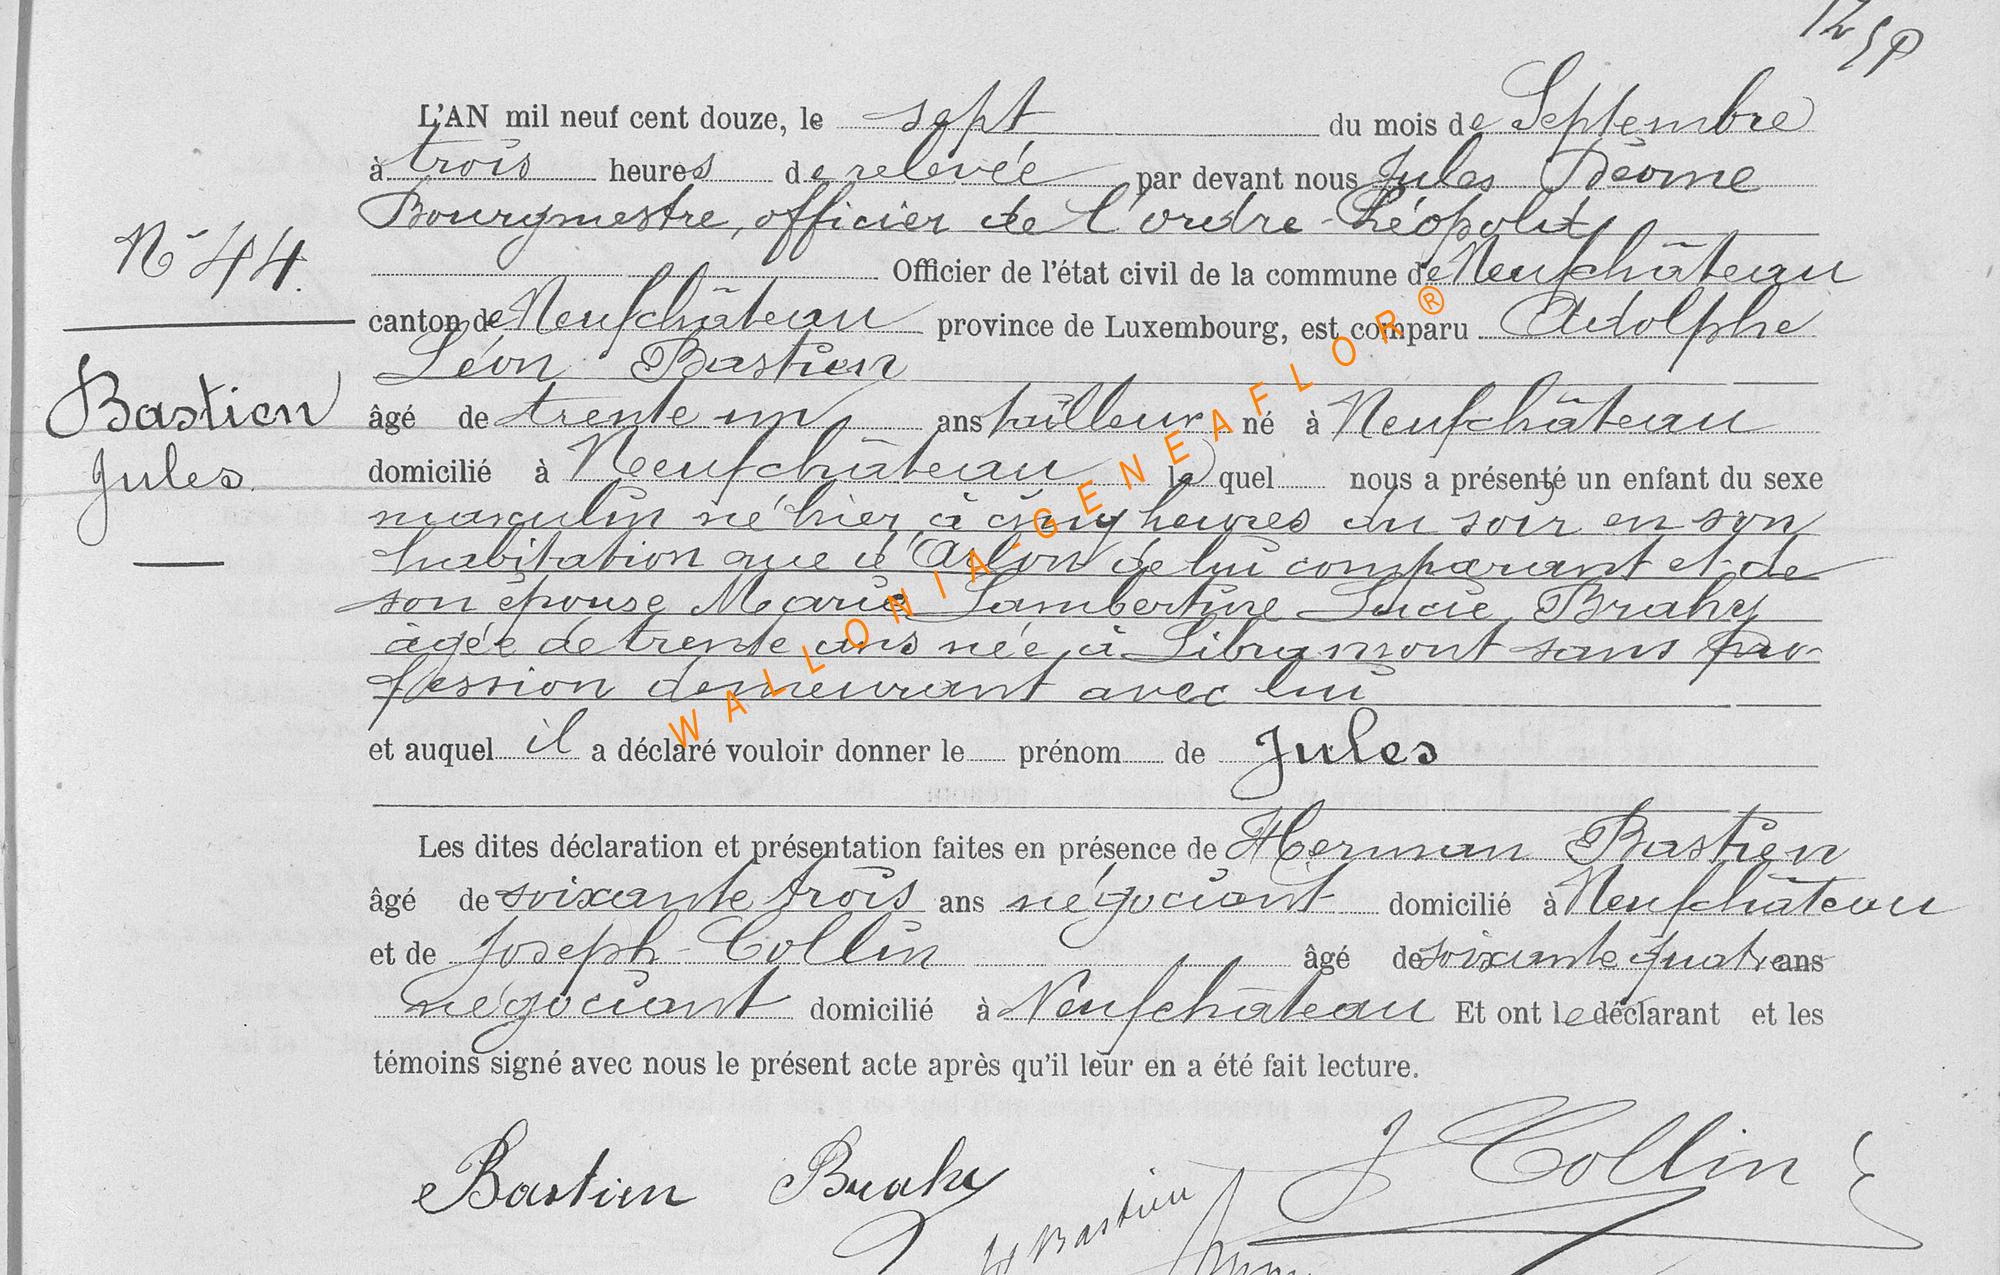 L'AN mil neuf cent douze, le sept du mois de Septembre
à trois heures de relevée par devant nous Jules
Bourgmestre, officier de l'ordre Léopold
N° 44.
Officier de l'état civil de la commune de Neufchâteau
canton de Neufchâteau province de Luxembourg, est comparu Adolphe
Léon Bastien
Bastien
Jules.
âgé de trente un ans tailleur né à Neufchâteau
domicilié à Neufchâteau lequel nous a présenté un enfant du sexe
masculin né hier à cinq heures du soir en son
habitation rue d'Arlon de lui comparant et de
son épouse Marie Lambertine Lucie Brahy
âgée de trente ans née à Libramont sans pro-
fession demeurant avec lui
et auquel il a déclaré vouloir donner le prénom de Jules
Les dites déclaration et présentation faites en présence de Herman Bastien
âgé de soixante trois ans négociant domicilié à Neufchâteau
et de Joseph Collin âgé de soixante quatre ans
négociant domicilié à Neufchâteau Et ont le déclarant et les
témoins signé avec nous le présent acte après qu'il leur en a été fait lecture.
Bastien Brahy
H Bastien
J Collin
WALLONIA-GENEAFLOR®